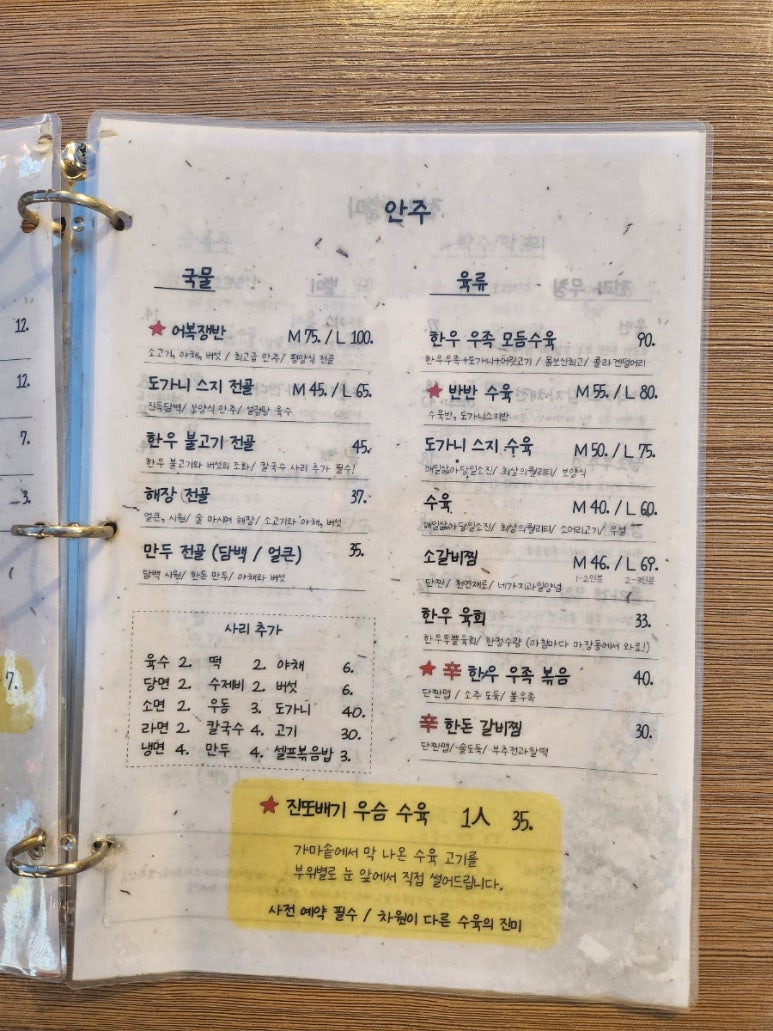 12.
12.
7.
3.
7.
안주
국물
★ 어복쟁반 M 75. / L 100.
소고기, 야채, 버섯 / 최고급 안주 / 평양식 전골
도가니 스지 전골 M 45. / L 65.
진득담백 / 보양식 안주 / 설렁탕 육수
한우 불고기 전골 45.
한우 불고기와 버섯의 조화 / 칼국수 사리 추가 필수!
해장 전골 37.
얼큰, 시원 / 술 마시며 해장 / 소고기와 야채, 버섯
만두 전골 (담백 / 얼큰) 35.
담백 시원 / 한돈 만두 / 야채와 버섯
사리 추가
육수 2. 떡 2. 야채 6.
당면 2. 수제비 2. 버섯 6.
소면 2. 우동 3. 도가니 40.
라면 2. 칼국수 4. 고기 30.
냉면 4. 만두 4. 셀프볶음밥 3.
육류
한우 우족 모듬수육 90.
한우우족+도가니+머릿고기 / 몸보신최고 / 콜라겐덩어리
★ 반반 수육 M 55. / L 80.
수육반, 도가니스지반
도가니 스지 수육 M 50. / L 75.
매일삶아당일소진 / 최상의퀄리티 / 보양식
수육 M 40. / L 60.
매일삶아당일소진 / 최상의퀄리티 / 소머리고기 / 우설
소갈비찜 M 46. / L 69.
1-2인분 2-3인분
단짠 / 천연재료 / 네가지과일양념
한우 육회 33.
한우투뿔육회 / 한정수량 (아침마다 마장동에서 와요!)
★ 辛 한우 우족 볶음 40.
단짠맵 / 소주 도둑 / 불우족
辛 한돈 갈비찜 30.
단짠맵 / 술도둑 / 부추전과찰떡
★ 진또배기 우슴 수육 1人 35.
가마솥에서 막 나온 수육 고기를
부위별로 눈 앞에서 직접 썰어드립니다.
사전 예약 필수 / 차원이 다른 수육의 진미